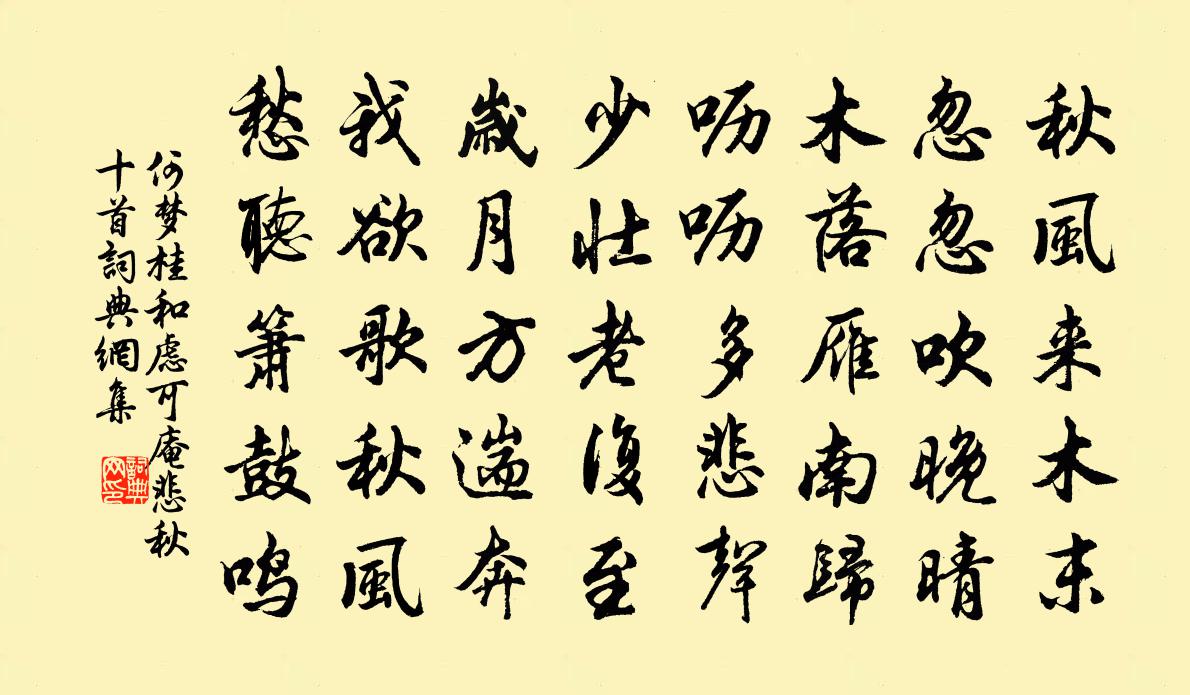 秋風来木末
忽忽吹晚晴
木落雁南歸
呖呖多悲聲
少壯老復至
歲月方遄奔
我欲歌秋風
愁聽簫鼓鳴
何梦桂和慮可庵悲秋
十首詞典網集
詞典